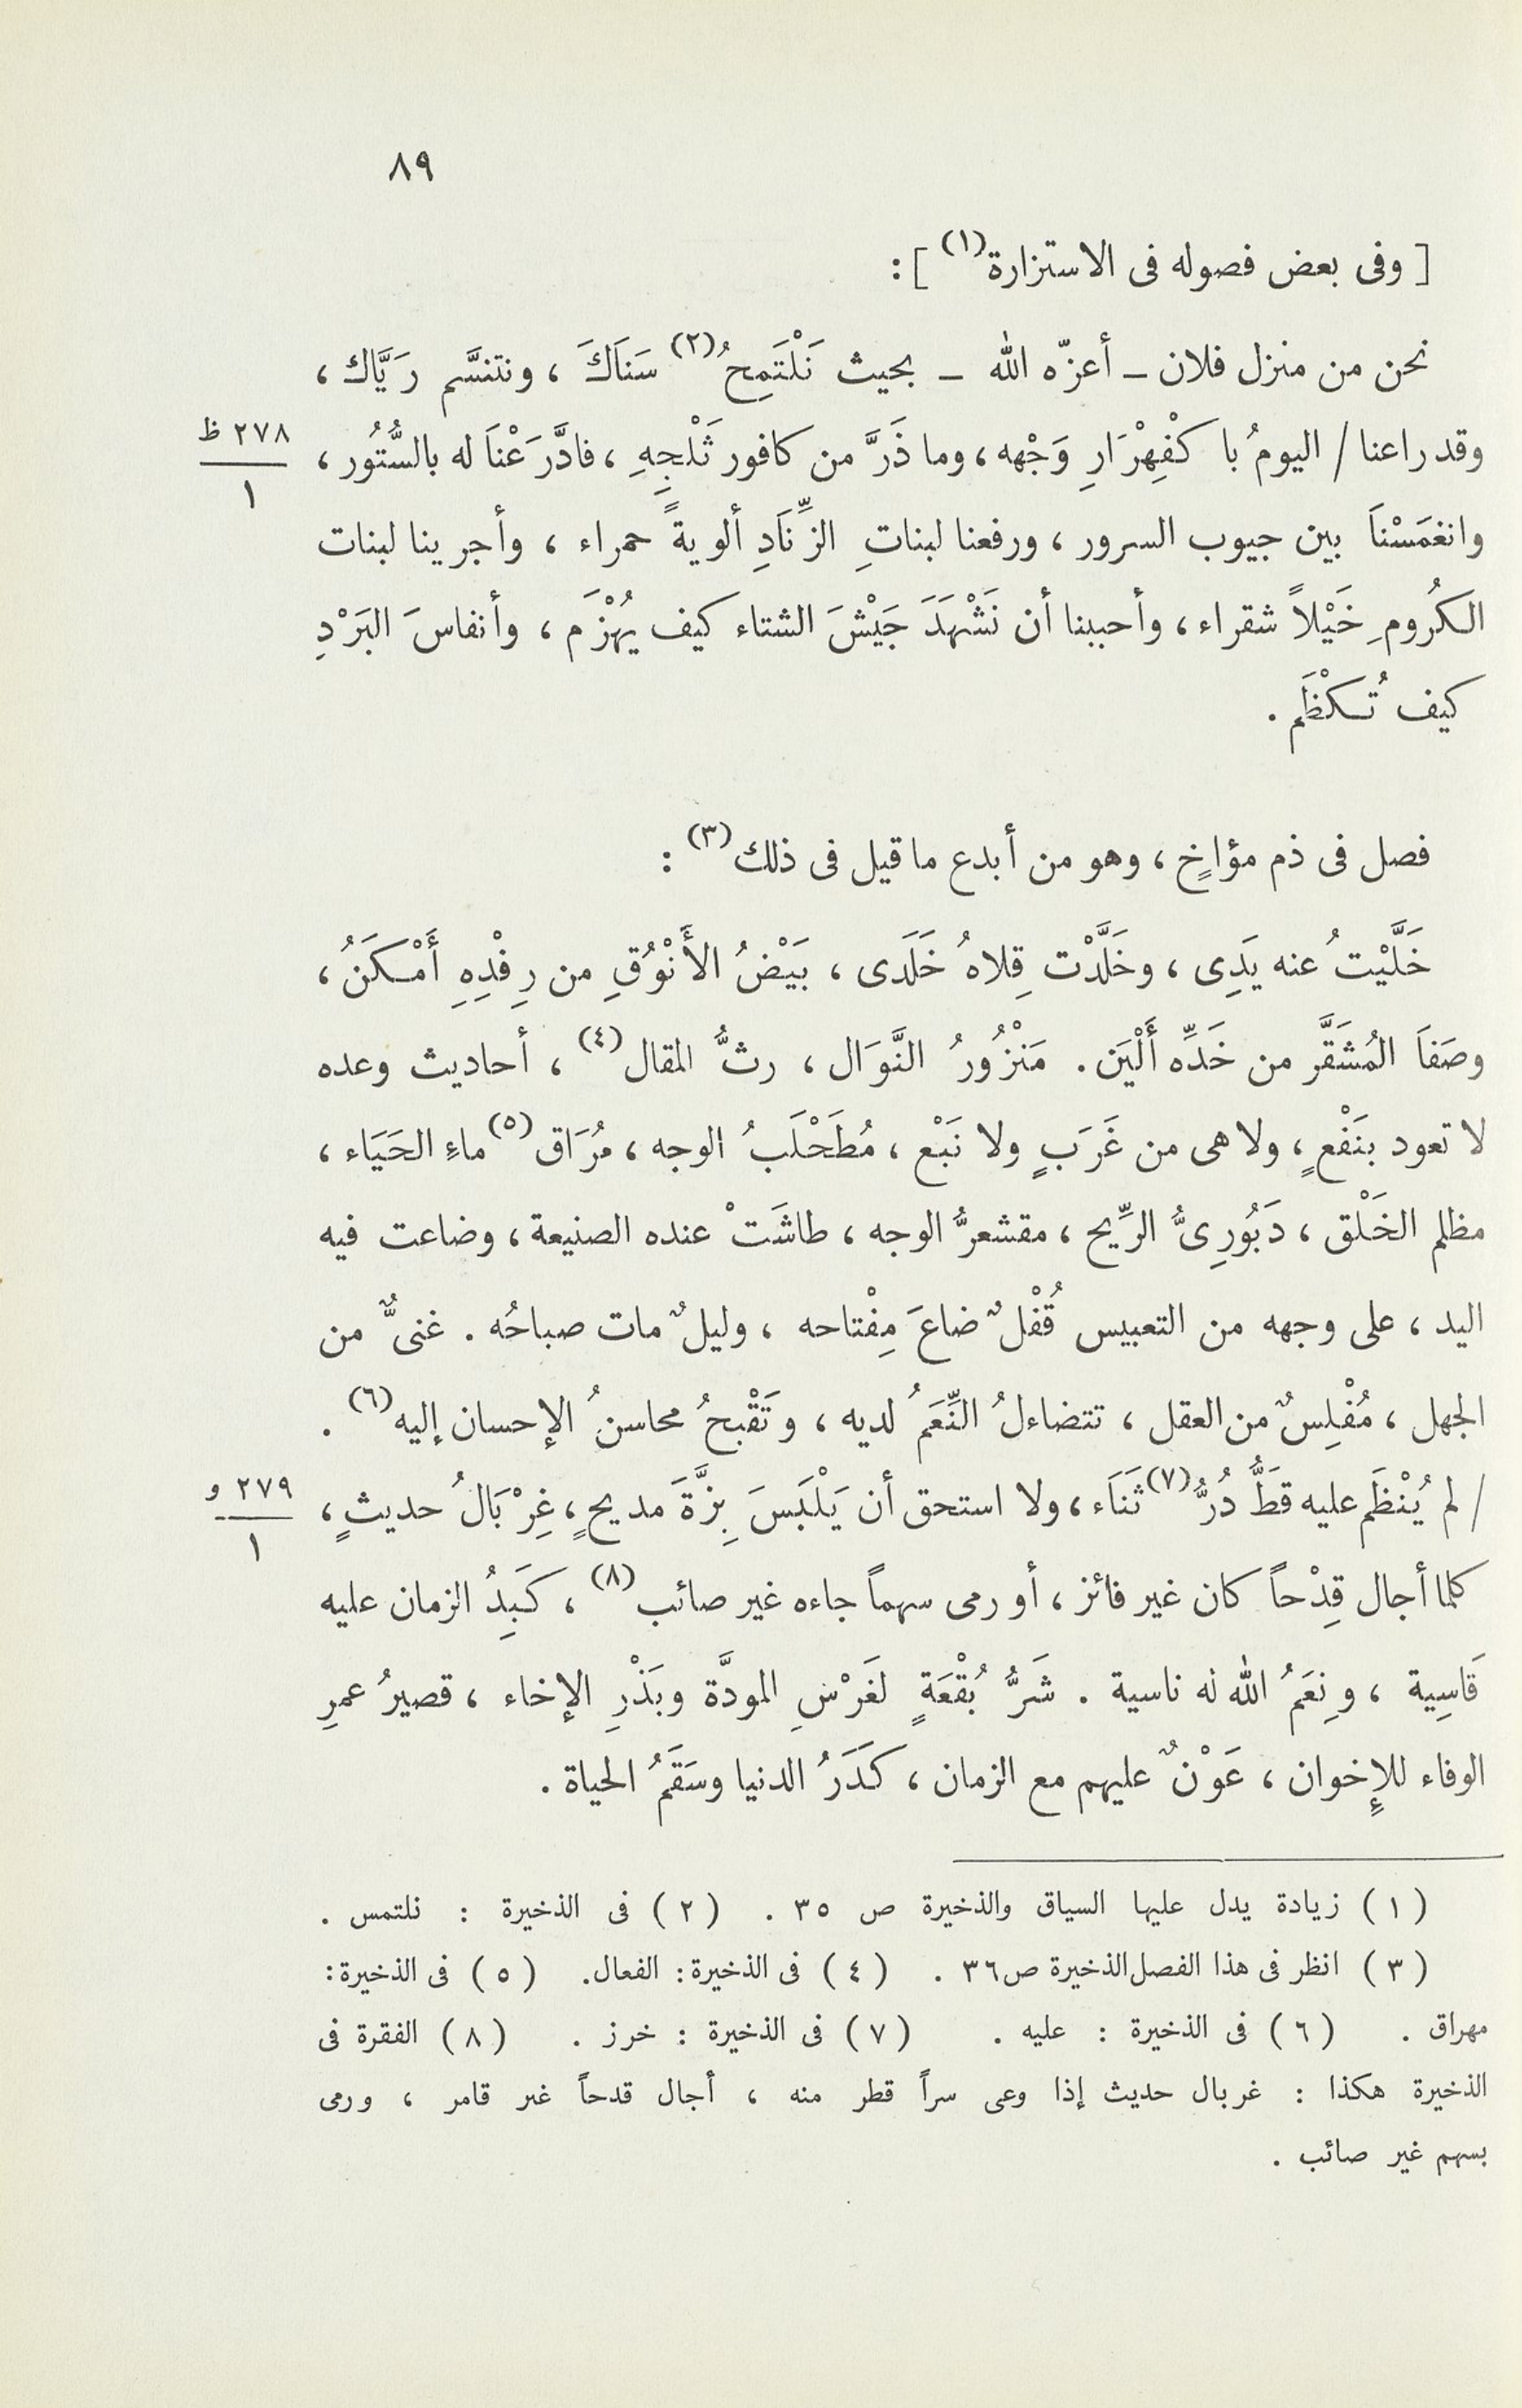 ٨٩
[ وفى بعض فصوله فى الاستزارة(١) ] :
نحن من منزل فلان – أعزّه الله – بحيث نَلْتَمِحُ(٢) سَنَاَكَ ، ونتنسَّم رَيَّاك ،
وقد راعنا / اليومُ باكْفِهْرَارِ وَجْهه ، وما ذَرَّ من كافور ثَلْجِهِ ، فادَّرَعْنَا له بالسُّتُور ،
٢٧٨ ظ
١
وانغمَسْنَا بين جيوب السرور ، ورفعنا لبناتِ الزِّنَادِ ألويةً حمراء ، وأجرينا لبنات
الكرُومِ خَيْلاً شقراء ، وأحببنا أن نَشْهَدَ جَيْشَ الشتاء كيف يُهْزَم ، وأنفاسَ البَرْدِ
كيف تُكْظَم .
فصل فى ذم مؤاخٍ ، وهو من أبدع ما قيل فى ذلك(٣) :
خَلَّيْتُ عنه يَدِى ، وخَلَّدْت قِلاهُ خَلَدَى ، بَيْضُ الأَنْوُقِ من رِفْدِهِ أَمْكَنُ ،
وصَفَا المُشَقَّر من خَدِّه أَلْيَن . مَنْزُورُ النَّوَال ، رثُّ المقال(٤) ، أحاديث وعده
لا تعود بنَفْعٍ ، ولا هى من غَرَبٍ ولا نَبْع ، مُطَحْلَبُ الوجه ، مُرَاق(٥) ماءِ الحَيَاء ،
مظلم الخَلْق ، دَبُورِىُّ الرِّيح ، مقشعرُّ الوجه ، طاشَتْ عنده الصنيعة ، وضاعت فيه
اليد ، على وجهه من التعبيس قُفْلٌ ضاعَ مِفْتاحه ، وليلٌ مات صباحُه . غنىٌّ من
الجهل ، مُفْلِسٌ من العقل ، تتضاءلُ النِّعَمُ لديه ، وتَقْبحُ محاسنُ الإحسان إليه(٦) .
/ لم يُنْظَم عليه قطَّ دُرُّ(٧) ثَنَاَء ، ولا استحق أن يَلْبَسَ بِزَّةَ مديحٍ ، غِرْبَالُ حديثٍ ،
٢٧٩ و
١
كلما أجال قِدْحاً كان غير فائز ، أو رمى سهماً جاءه غير صائب(٨) ، كَبِدُ الزمان عليه
قَاسِية ، ونِعَمُ الله له ناسية . شَرُّ بُقْعَةٍ لغَرْسِ المودَّة وبَذْرِ الإخاء ، قصيرُ عمرِ
الوفاء للإِخوان ، عَوْنٌ عليهم مع الزمان ، كَدَرُ الدنيا وسَقَمُ الحياة .
( ١ ) زيادة يدل عليها السياق والذخيرة ص ٣٥ . ( ٢ ) فى الذخيرة : نلتمس .
( ٣ ) انظر فى هذا الفصل الذخيرة ص ٣٦ . ( ٤ ) فى الذخيرة : الفعال . ( ٥ ) فى الذخيرة :
مهراق . ( ٦ ) فى الذخيرة : عليه . ( ٧ ) فى الذخيرة : خرز . ( ٨ ) الفقرة فى
الذخيرة هكذا : غربال حديث إذا وعى سراً قطر منه ، أجال قدحاً غير قامر ، ورمى
بسهم غير صائب .